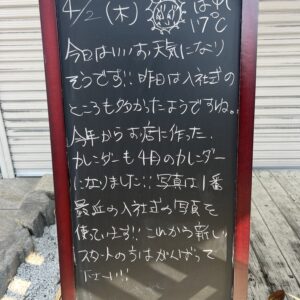 4/2(木) はれ 17℃
今日はいいお天気になり
そうです!! 昨日は入社式の
ところも多かったようですね。
今年からお店に作った
カレンダーも4月のカレンダー
になりました!! 写真は1番
最近の入社式の写真を
使ています!! これから新しい
スタートの方はがんばって
下さい!!